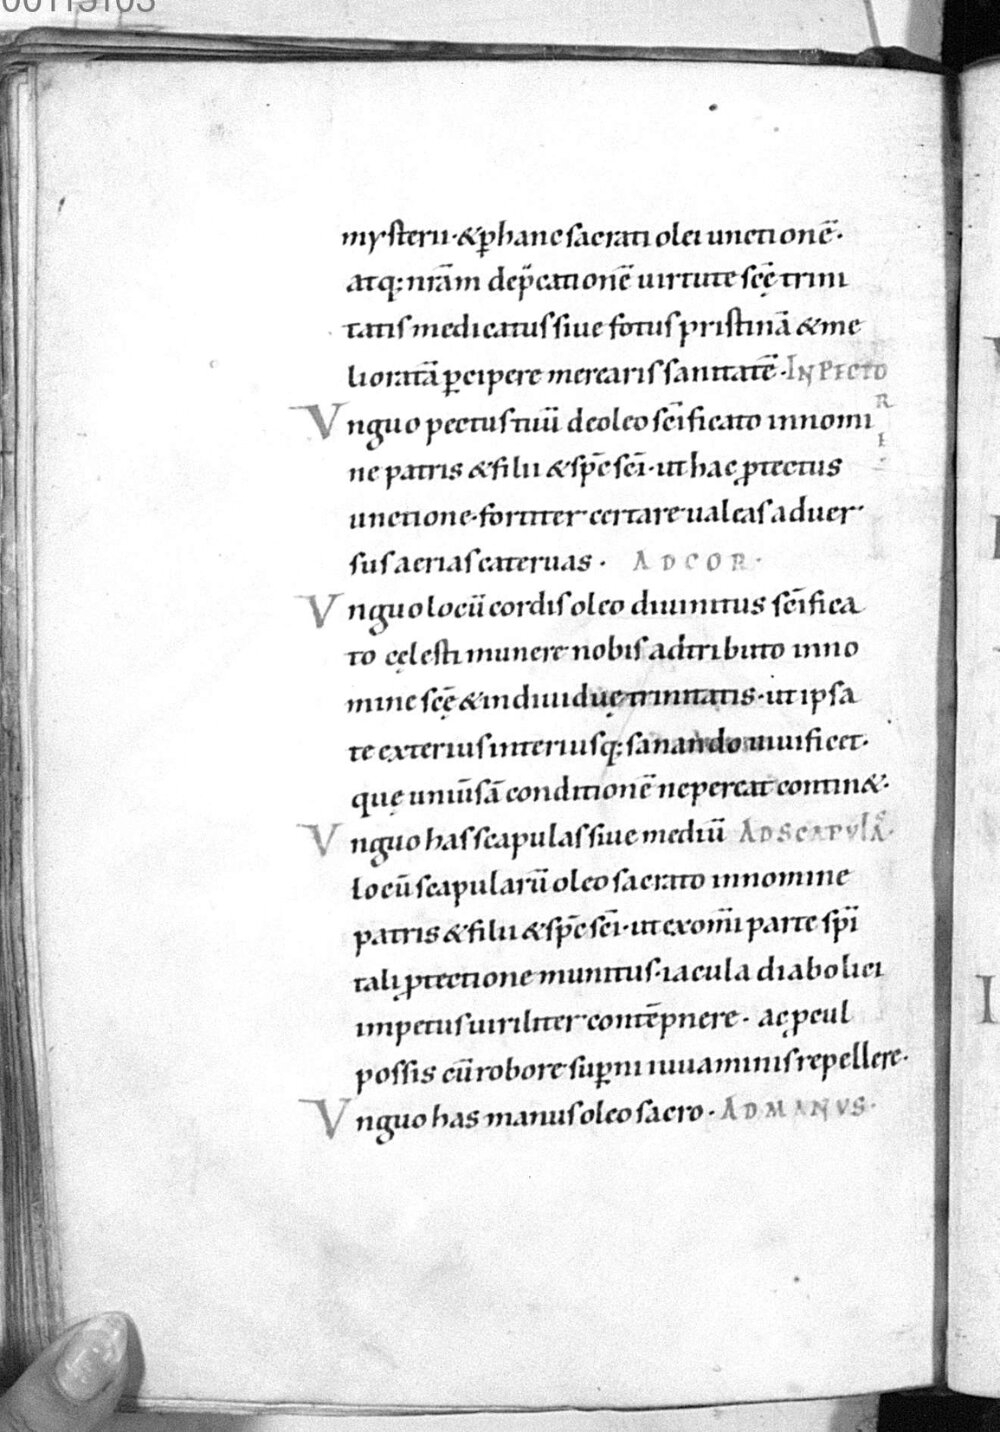 mysterii·&p̱hanc sacrati olei unctionē·
atq:nr̄am dep̄cationē uirtute scę̄ trini
tatis medicatus siue fotus pristinā & me
lioratā p̱cipere merearis sanitatē·IN PECTO
RE
Vnguo pectus tuū de oleo sc̄ificato in nomi
ne patris & filii & sp̄c sc̄i·ut hac ꝓtectus
unctione·fortiter certare ualeas aduer
sus aerias cateruas· AD COR·
Vnguo locū cordis oleo diuinitus sc̄ifica
to cęlesti munere nobis adtributo in no
mine scę̄ & indiuiduę trinitatis·ut ipsa
te exterius interiusq:sanando uiuificet·
quę uniūsā conditionē ne pereat contin&·
Vnguo has scapulas siue mediū AD SCAPVLAS·
locū scapularū oleo sacrato in nomine
patris & filii & sp̄c sc̄i·ut ex om̄i parte sp̄i
tali ꝓtectione munitus·iacula diabolici
impetus uiriliter contēpnere· ac ꝓcul
possis cū robore sup̱ni iuuaminis repellere·
Vnguo has manus oleo sacro· AD MANVS·